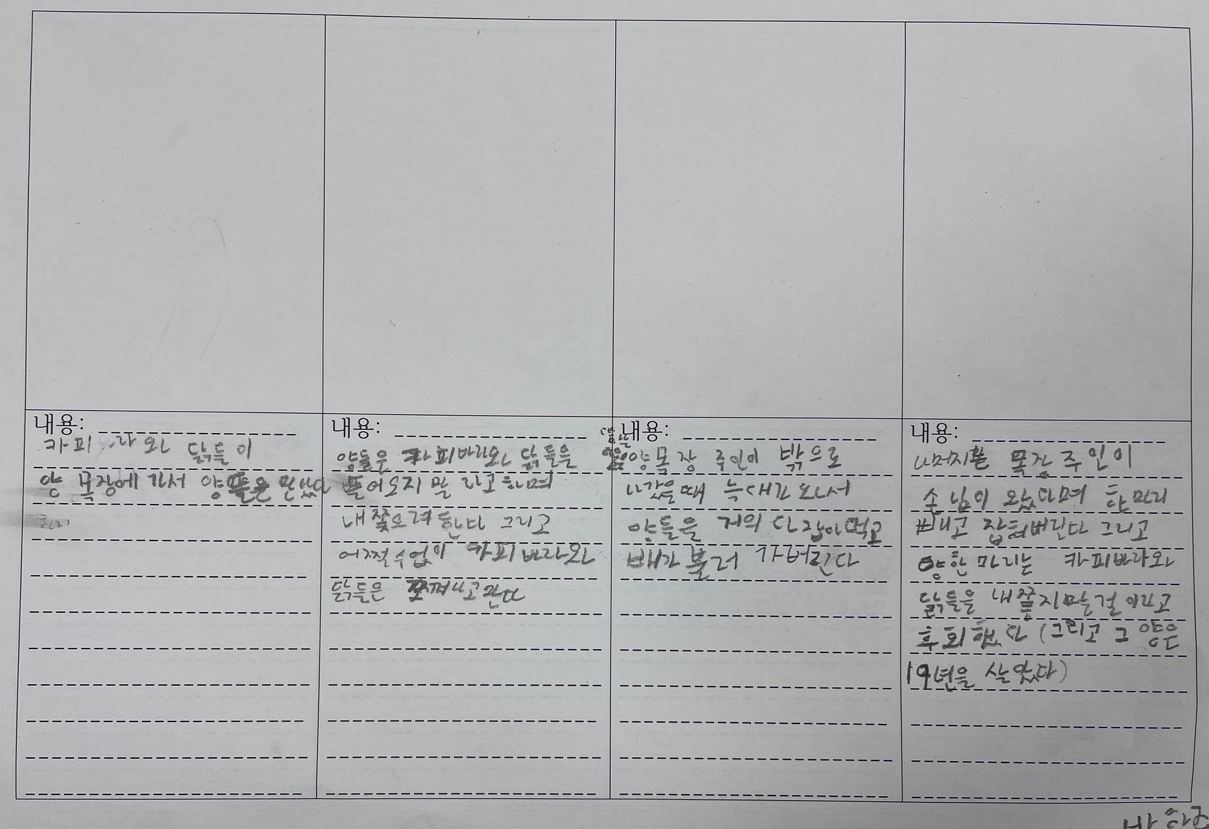 내용:
카피 라와 닭들이
양 목장에 가서 양들을 만났다
내용:
양들은 카피바라와 닭들을
들어오지 말 라고 하며
내쫓으려 한다 그리고
어쩔수없이 카피바라와
닭들은 쫓겨나고 만다
내용:
양목장 주인이 밖으로
나갔을때 늑대가 와서
양들을 거의 다 잡아먹고
배가 불러 가버린다
내용:
나머지를 목장주인이
손님이 왔다며 한마리
빼고 잡혀버린다 그리고
양한마리는 카피바라와
닭들을 내쫓지마는걸 이라고
후회했다 (그리고 그 양은
19년을 살았다)